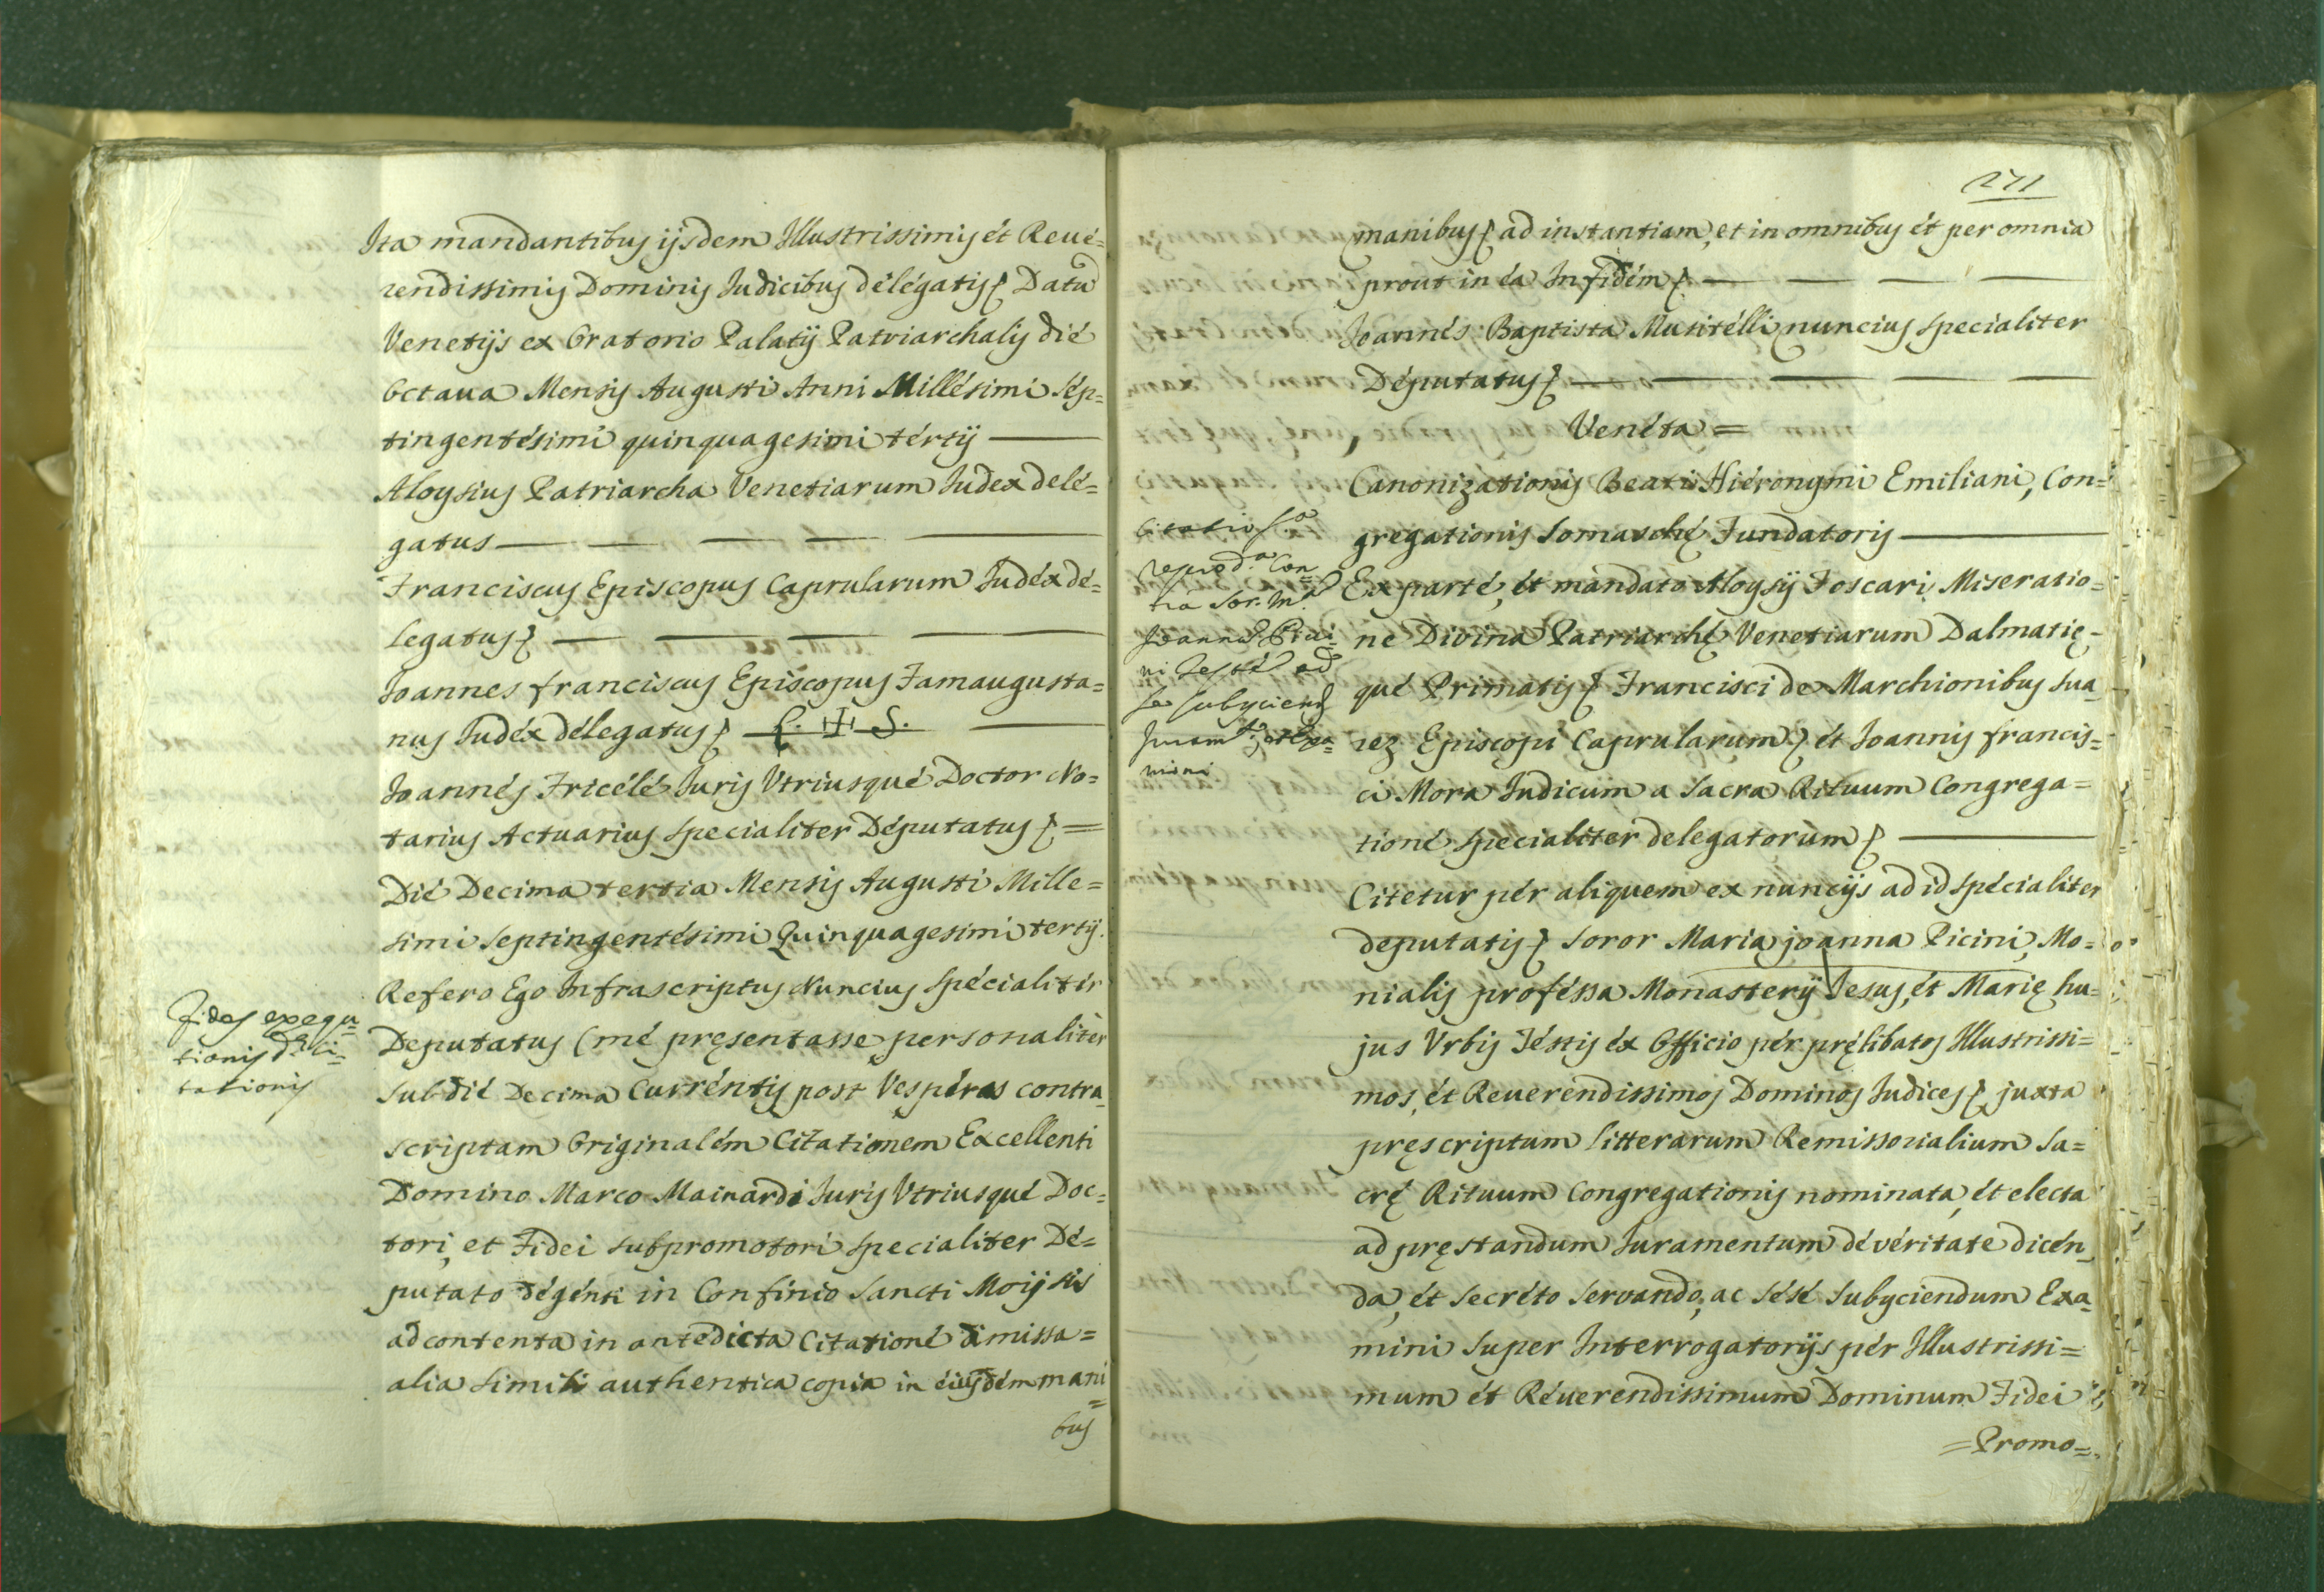 Ita mandantibus ijsdem Illustrissimis ét Reué=
rendissimis Dominis Iudicibus délégatis Datu
Venetijs ex Oratorio Palatij Patriarchalis dié
Octaua Mensis Augusti Anni Millésimi Sép=
tingentésimi quinquagesimi tértij
Aloysius Patriarcha Venetiarum Iudex delé=
gatus
Franciscus Episcopus Caprularum Iudéx dé=
legatus
Joannes franciscus Episcopus Famaugusta=
nus Iudéx délegatus L. + S.
Joannés Fricélé Iuris Vtriusqué Doctor No=
tarius Actuarius specialiter Députatus =
Dié Decima tertia Mensis Augusti Mille=
simi Septingentésimi Quinquagesimi tertij.
Refero Ego Infrascriptus Nuncius Spécialitér
Deputatus (mé pręsentasse personalitèr
sub dié Decima Curréntis post Vespéras contra
scriptam Originalém Citationem Excellenti
Domino Marco Mainardi Iuris Vtriusqué Doc=
tori, et Fidei subpromotori specialiter Dé=
putato dégénti in Confinio Sancti Moijsis
ad contenta in antedicta Citationé dimissa=
alia simili authentica copia in éiusdém mani
=
bus
Fides exequ=
tionis d.ę Ci=
tationis
271
manibus ad instantiam, et in omnibus ét per omnia
prout in éa Infidém
Joannés Baptista Musitélli nuncius specialiter
Députatus
Venéta =
Canonizationis Beati Hiéronymi Emiliani, Con=
gregationis Somaschę Fundatoris
Ex parté, ét mandato Aloysij Foscari Miseratio=
ne Divina Patriarchę Venetiarum Dalmatię-
qué Primatis Francisci de Marchionibus Sua
rez Episcopi Caprularum ét Ioannis francis=
ci Mora Iudicum a Sacra Rituum Congrega=
tioné specialiter delegatorum
Citetur pér aliquem ex nuncijs ad id spécialiter
deputatis Soror Maria joanna Picini, Mo=
nialis proféssa Monasterij Jesus, ét Marię hu=
jus Vrbis Téstis éx Officio pér pręlibatos Illustrissi=
mos, ét Reuerendissimos Dominos Iudices juxta
pręscriptum litterarum Remissorialium Sa=
crę Rituum Congregationis nominata, ét electa
ad pręstandum Iuramentum dé véritate dicén
da, ét secréto servando, ac sésé subyciendum Exa
mini super Interrogatorijs pér Illustrissi=
mum ét Réuerendissimum Dominum Fidei
=Promo=
Citatio
reprod.a Con=
tra Sor. M.a
Joanna Picci=
ni Testé ad
se subyciend
Juram.to, et Exa=
mini